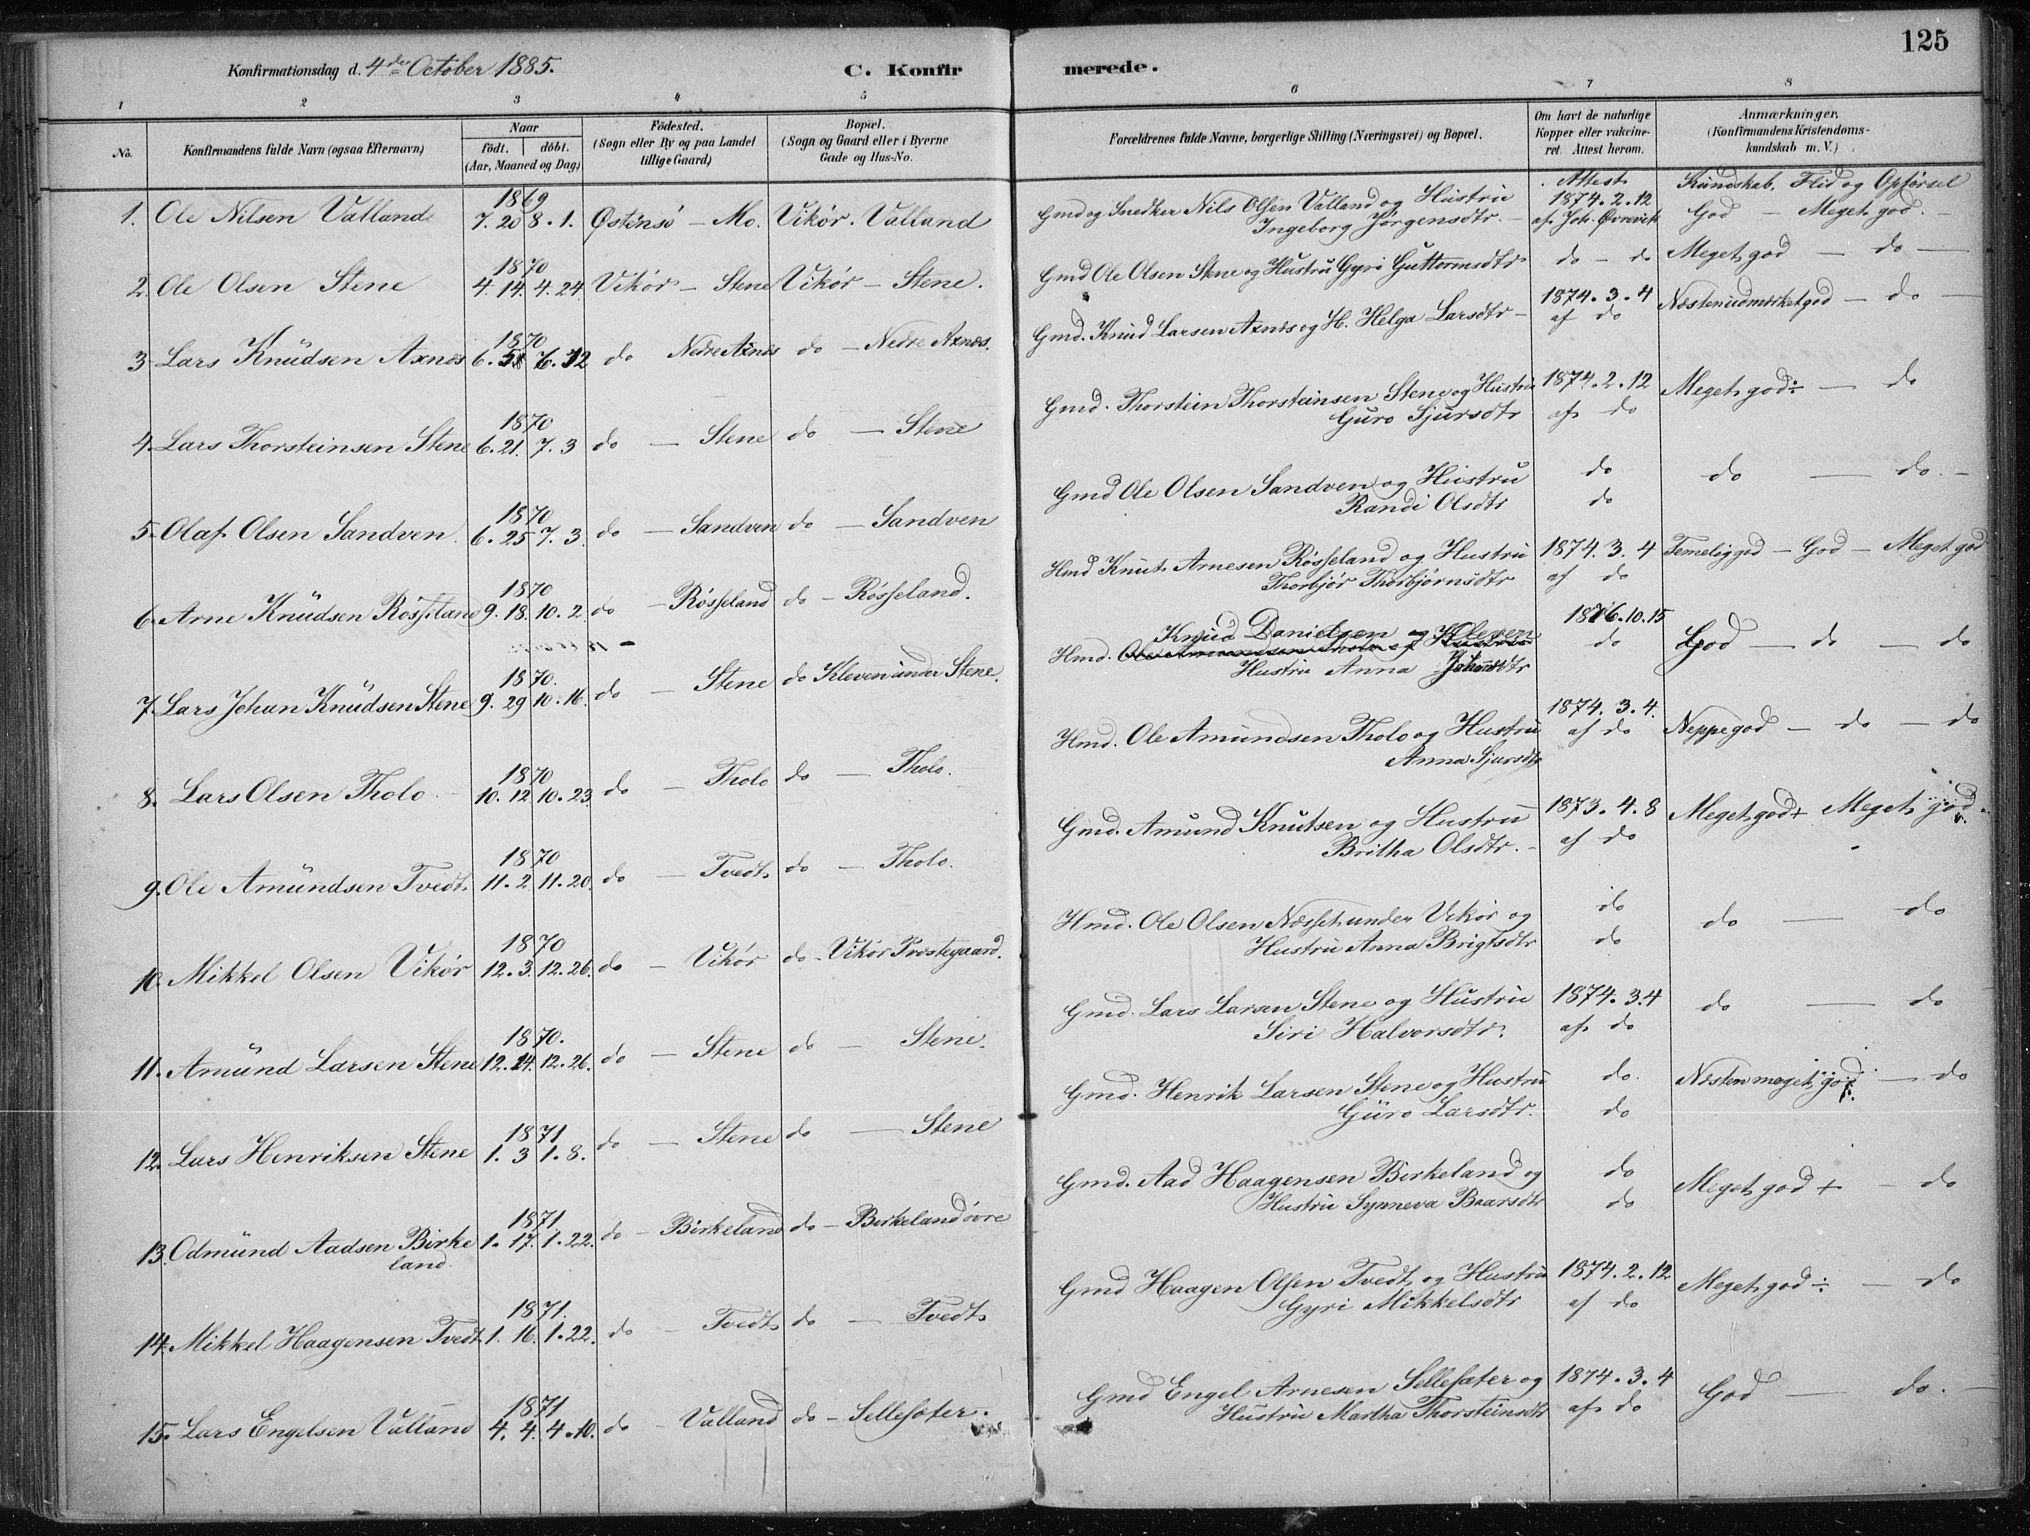 125
Konfirmationsdag d. 4de October 1885. C. Konfirmerede.
1 2 3 4 5 6 7 8
No. Konfirmandens fulde Navn (ogsaa Efternavn) Naar födt. döbt. (Aar, Maaned og Dag) Födested. (Sogn eller By og paa Landet tillige Gaard) Bopæl. (Sogn og Gaard eller i Byerne Gade og Hus-No. Forældrenes fulde Navne, borgerlige Stilling (Næringsvei) og Bopæl. Om havt de naturlige Kopper eller vakcineret. Attest herom. Anmærkninger. (Konfirmandens Kristendomskundskab m. V.)
Attest Kundskab, Flid og Opførsel
1869
1. Ole Nilsen Valland 7. 20 8. 1. Østensö – Mo. Vikör. Valland Gmd og Snedker Nils Olsen Valland og Hustru Ingeborg Jörgensdtr. – 1874. 2. 12 af Joh. Övrevik God – Meget god. –
1870
2. Ole Olsen Stene 4. 14. 4. 24 Vikör – Stene Vikör – Stene. Gmd Ole Olsen Stene og Hustru Gyri Guttormsdtr do – do Meget god – do –
1870
3 Lars Knudsen Axnes 6. 6. 12 do Nedre Axnes do – Nedre Axnes. Gmd. Knud Larsen Axnes og H. Helga Larsdtr – 1874. 3. 4 af do Næsten udmærket god – do –
1870
4. Lars Thorsteinsen Stene 6. 21. 7. 3 do – Stene do – Stene Gmd. Thorstein Thorsteinsen Stene og Hustru Guro Sjursdtr 1874. 2. 12 af do Meget god ÷ – do
1870
5. Olaf Olsen Sandven. 6. 25 7. 3. do – Sandven do – Sandven Gmd Ole Olsen Sandven og Hustru Randi Olsdtr do do do – do. –
1870
6. Arne Knudsen Rösseland 9. 18. 10. 2. do – Rösseland do – Rösseland. Hmd Knut Arnesen Rösseland og Hustru Thorbjör Thorbjörnsdtr 1874. 3. 4 af do Temelig god – God – Meget god
1870.
7. Lars Johan Knudsen Stene 9. 29 10. 16. do – Stene do Kleven under Stene. Hmd. Knud Danielsen Kleven Hustru Anna Johannsdtr 1876. 10. 15 do God – do – do
1870
8. Lars Olsen Tholo – 10. 12 10. 23. do – Tholo do – Tholo. Hmd. Ole Amundsen Tholo og Hustru Anna Sjursdtr 1874. 3. 4. af do Neppe god – do – do
1870
9. Ole Amundsen Tvedt 11. 2. 11. 20. do – Tvedt do – Tholo. Gmd. Amund Knutsen og Hustru Britha Olsdtr. – 1873. 4. 8 af do Meget god + Meget god.
1870
10. Mikkel Olsen Vikör 12. 3. 12. 26. do – Vikör do – Vikör Præstegaard. Hmd. Ole Olsen Næsset under Vikör og Hustru Anna Brigtsdtr do do do – do
1870.
11. Amund Larsen Stene 12. 14. 12. 26. do – Stene do – Stene. Gmd. Lars Larsen Stene og Hustru Siri Halvorsdtr. 1874. 3. 4 af do do – do
1871
12. Lars Henriksen Stene 1. 3 1. 8. do – Stene do – Stene Gmd. Henrik Larsen Stene og Hustru Guro Larsdtr. do. do Næsten meget god – do
1871.
13. Odmund Aadsen Birkeland. 1. 17. 1. 22. do – Birkeland do – Birkeland övre Gmd. Aad Haagensen Birkeland og Hustru Synneva Baarsdtr do do Meget god + – do
1871.
14. Mikkel Haagensen Tvedt 1. 16. 1. 22. do – Tvedt do – Tvedt Gmd Haagen Olsen Tvedt og Hustru Gyri Mikkelsdtr 1874. 2. 12 af do Meget god ÷ – do
1871
15. Lars Engelsen Valland 4. 4. 4. 10. do – Valland do – Sellesæter. Gmd Engel Arnesen Sellesæter og Hustru Martha Thorsteinsdtr 1874. 3. 4 af do God – do. –